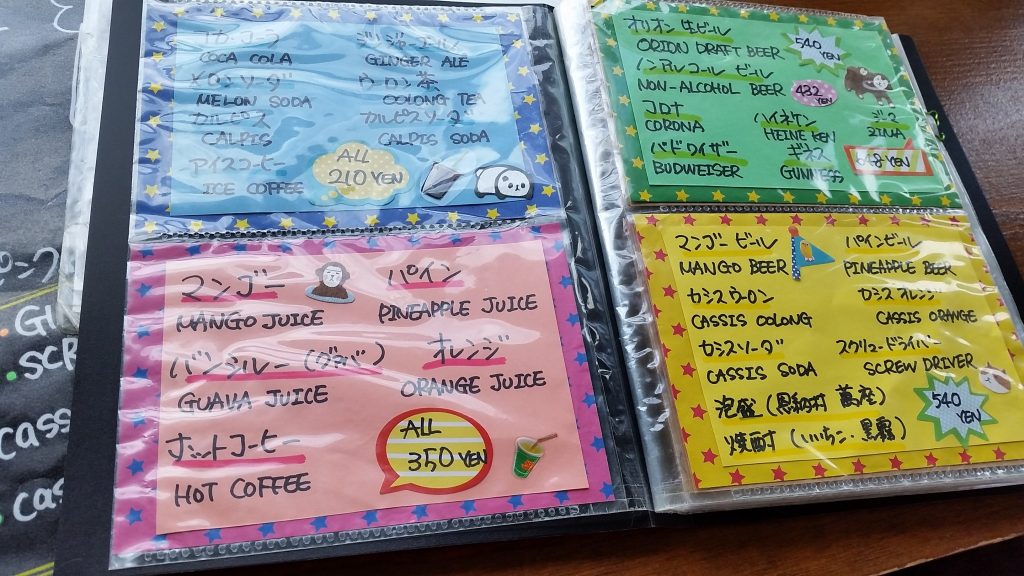 コカコーラ ジンジャーエール
COCA COLA GINGER ALE
メロンソーダ ウーロン茶
MELON SODA OOLONG TEA
カルピス カルピスソーダ
CALPIS CALPIS SODA
アイスコーヒー
ICE COFFEE
ALL
210 YEN
マンゴー パイン
MANGO JUICE PINEAPPLE JUICE
バンシルー(グァバ) オレンジ
GUAVA JUICE ORANGE JUICE
ホットコーヒー
HOT COFFEE
ALL
350 YEN
オリオン生ビール
ORION DRAFT BEER
540
YEN
ノンアルコールビール
NON-ALCOHOL BEER
432
YEN
コロナ ハイネケン ジマ
CORONA HEINEKEN ZIMA
バドワイザー ギネス
BUDWEISER GUINNESS
648 YEN
マンゴービール パインビール
MANGO BEER PINEAPPLE BEER
カシスウーロン カシスオレンジ
CASSIS OOLONG CASSIS ORANGE
カシスソーダ スクリュードライバー
CASSIS SODA SCREW DRIVER
泡盛(恩納村 萬座)
焼酎(いいちこ・黒霧)
540
YEN
SCR
cass
cas